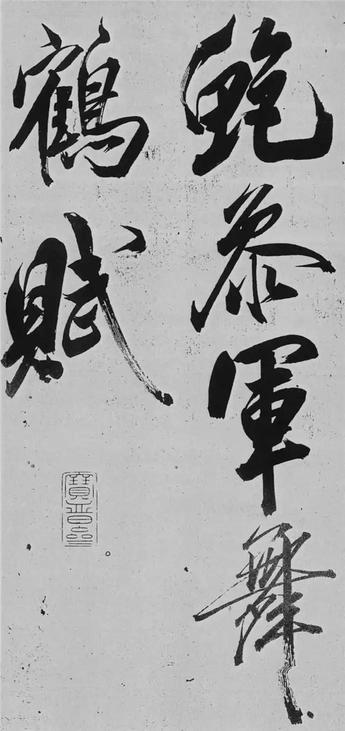 鮑參軍舞
鶴賦
寶晉齋